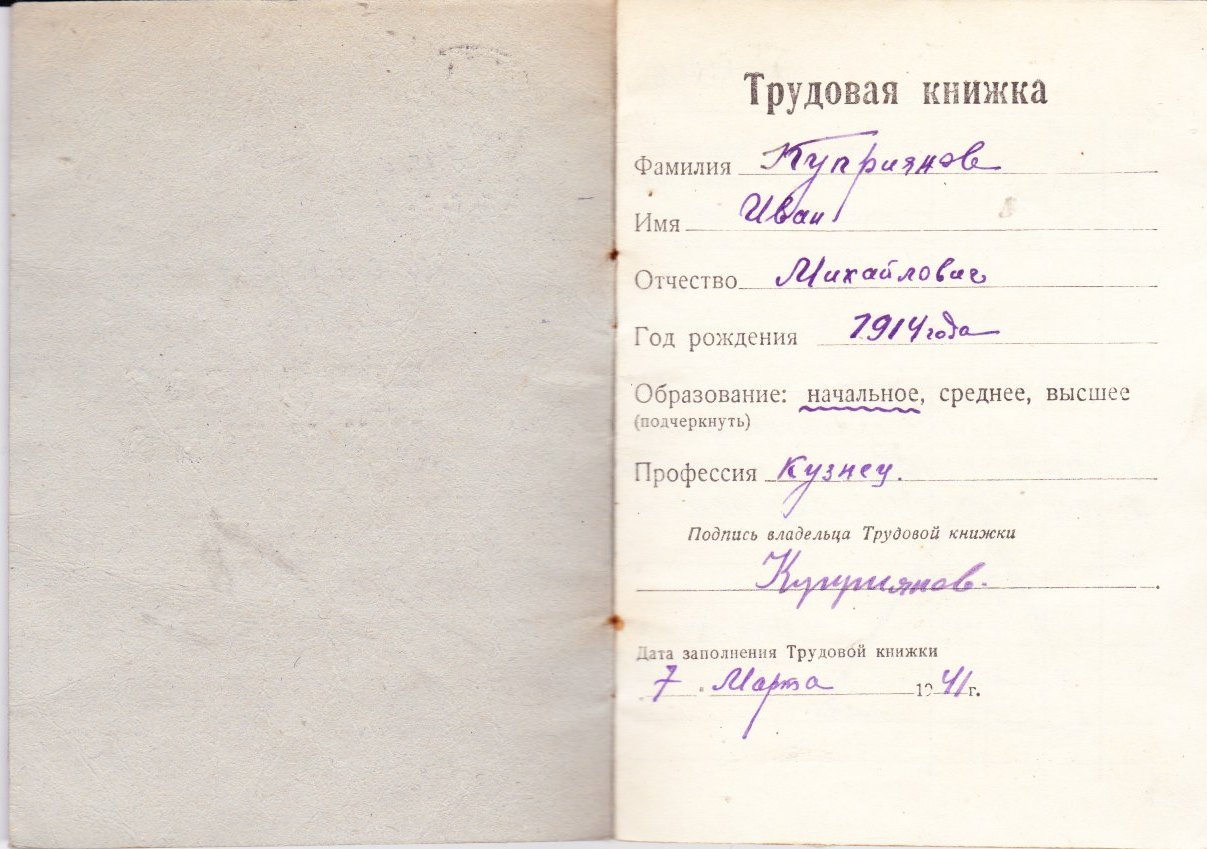 Трудовая книжка
Фамилия Куприянов
Имя Иван
Отчество Михайлович
Год рождения 1914 года
Образование: начальное, среднее, высшее
(подчеркнуть)
Профессия Кузнец.
Подпись владельца Трудовой книжки
Куприянов.
Дата заполнения Трудовой книжки
7 Марта 1941 г.